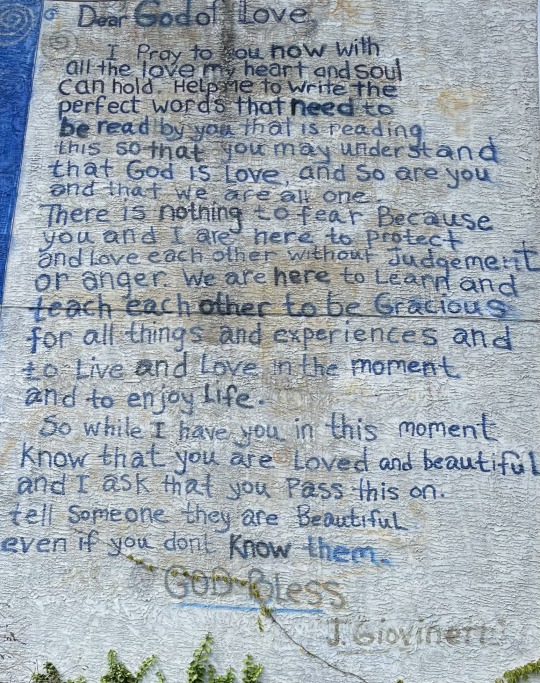 Dear God of Love,
I Pray to you now with
all the love my heart and soul
can hold. Help me to write the
perfect words that need to
be read by you that is reading
this so that you may understand
that God is Love, and so are you
and that we are all one.
There is nothing to fear Because
you and I are here to Protect
and Love each other without Judgement
or anger. We are here to Learn and
teach each other to be Gracious
for all things and experiences and
to Live and Love in the moment
and to enjoy Life.
So while I have you in this moment
Know that you are Loved and beautiful
and I ask that you Pass this on.
tell Someone they are Beautiful
even if you dont Know them.
GOD Bless
J. Giovinetti